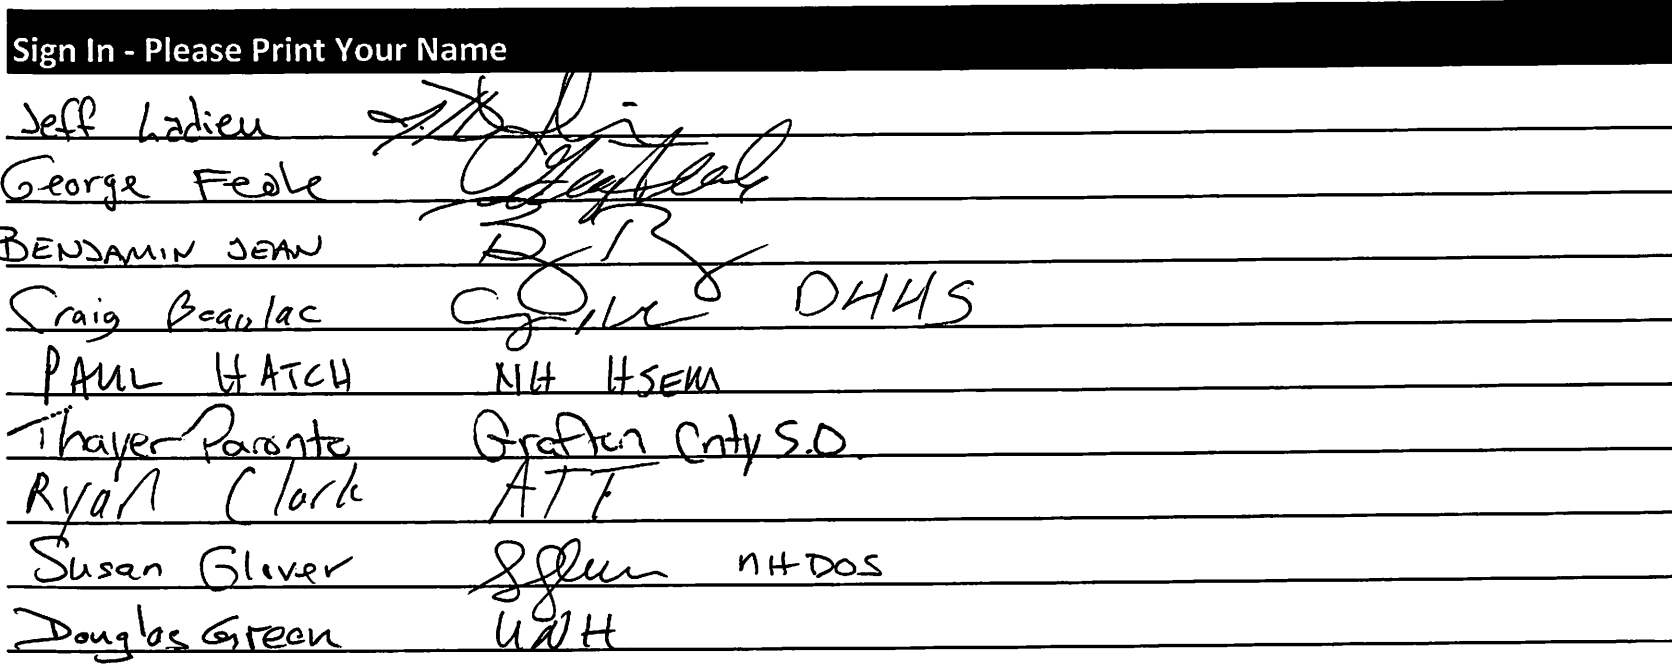 Sign In - Please Print Your Name
Jeff Ladieu
George Feole
BENJAMIN JEAN
Craig Beaulac DHHS
PAUL HATCH NH HSEM
Thayer Paronto Grafton Cnty S.O.
Ryan Clark ATT
Susan Glover NHDOS
Douglas Green UNH